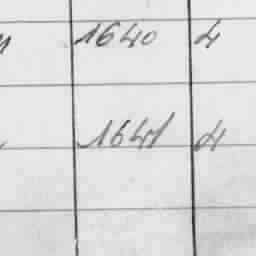 1640 4
1641 4